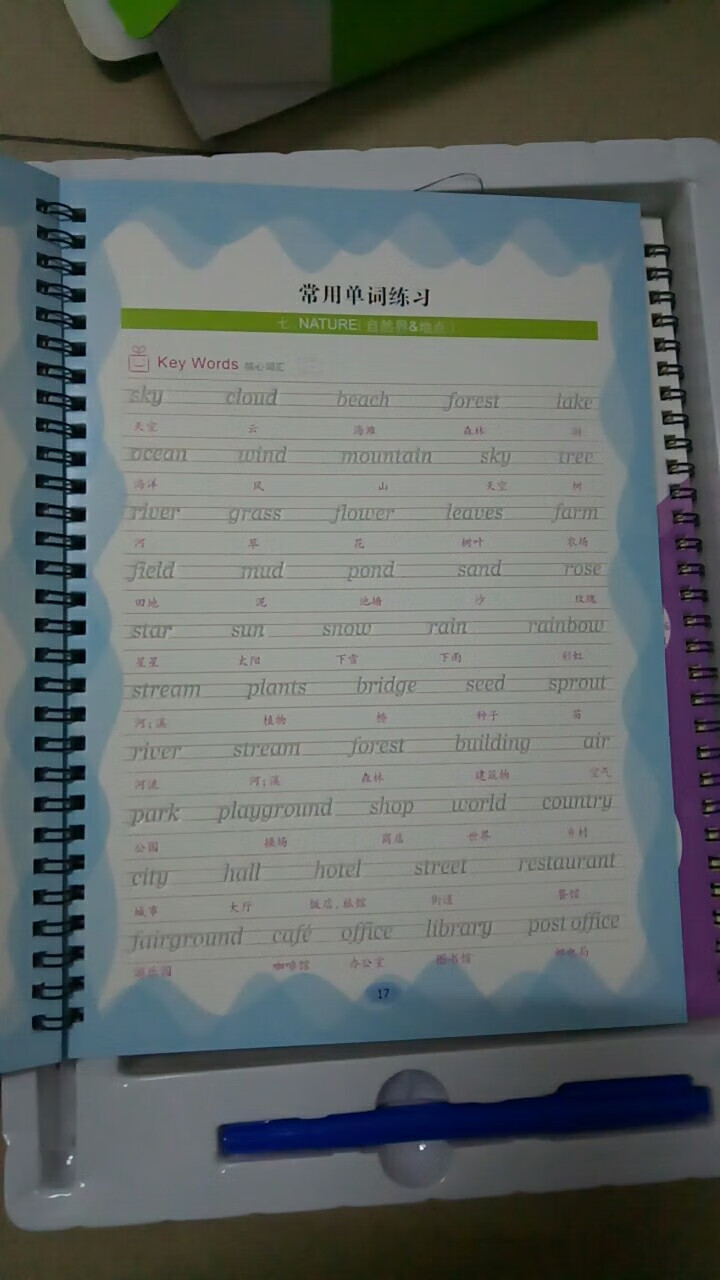 常用单词练习
七 NATURE(自然界&地点)
Key Words 核心词汇
sky cloud beach forest lake
天空 云 海滩 森林 湖
ocean wind mountain sky tree
海洋 风 山 天空 树
river grass flower leaves farm
河 草 花 树叶 农场
field mud pond sand rose
田地 泥 池塘 沙 玫瑰
star sun snow rain rainbow
星星 太阳 下雪 下雨 彩虹
stream plants bridge seed sprout
河;溪 植物 桥 种子 苗
river stream forest building air
河流 河;溪 森林 建筑物 空气
park playground shop world country
公园 操场 商店 世界 乡村
city hall hotel street restaurant
城市 大厅 饭店,旅馆 街道 餐馆
fairground café office library post office
游乐园 咖啡馆 办公室 图书馆 邮电局
17